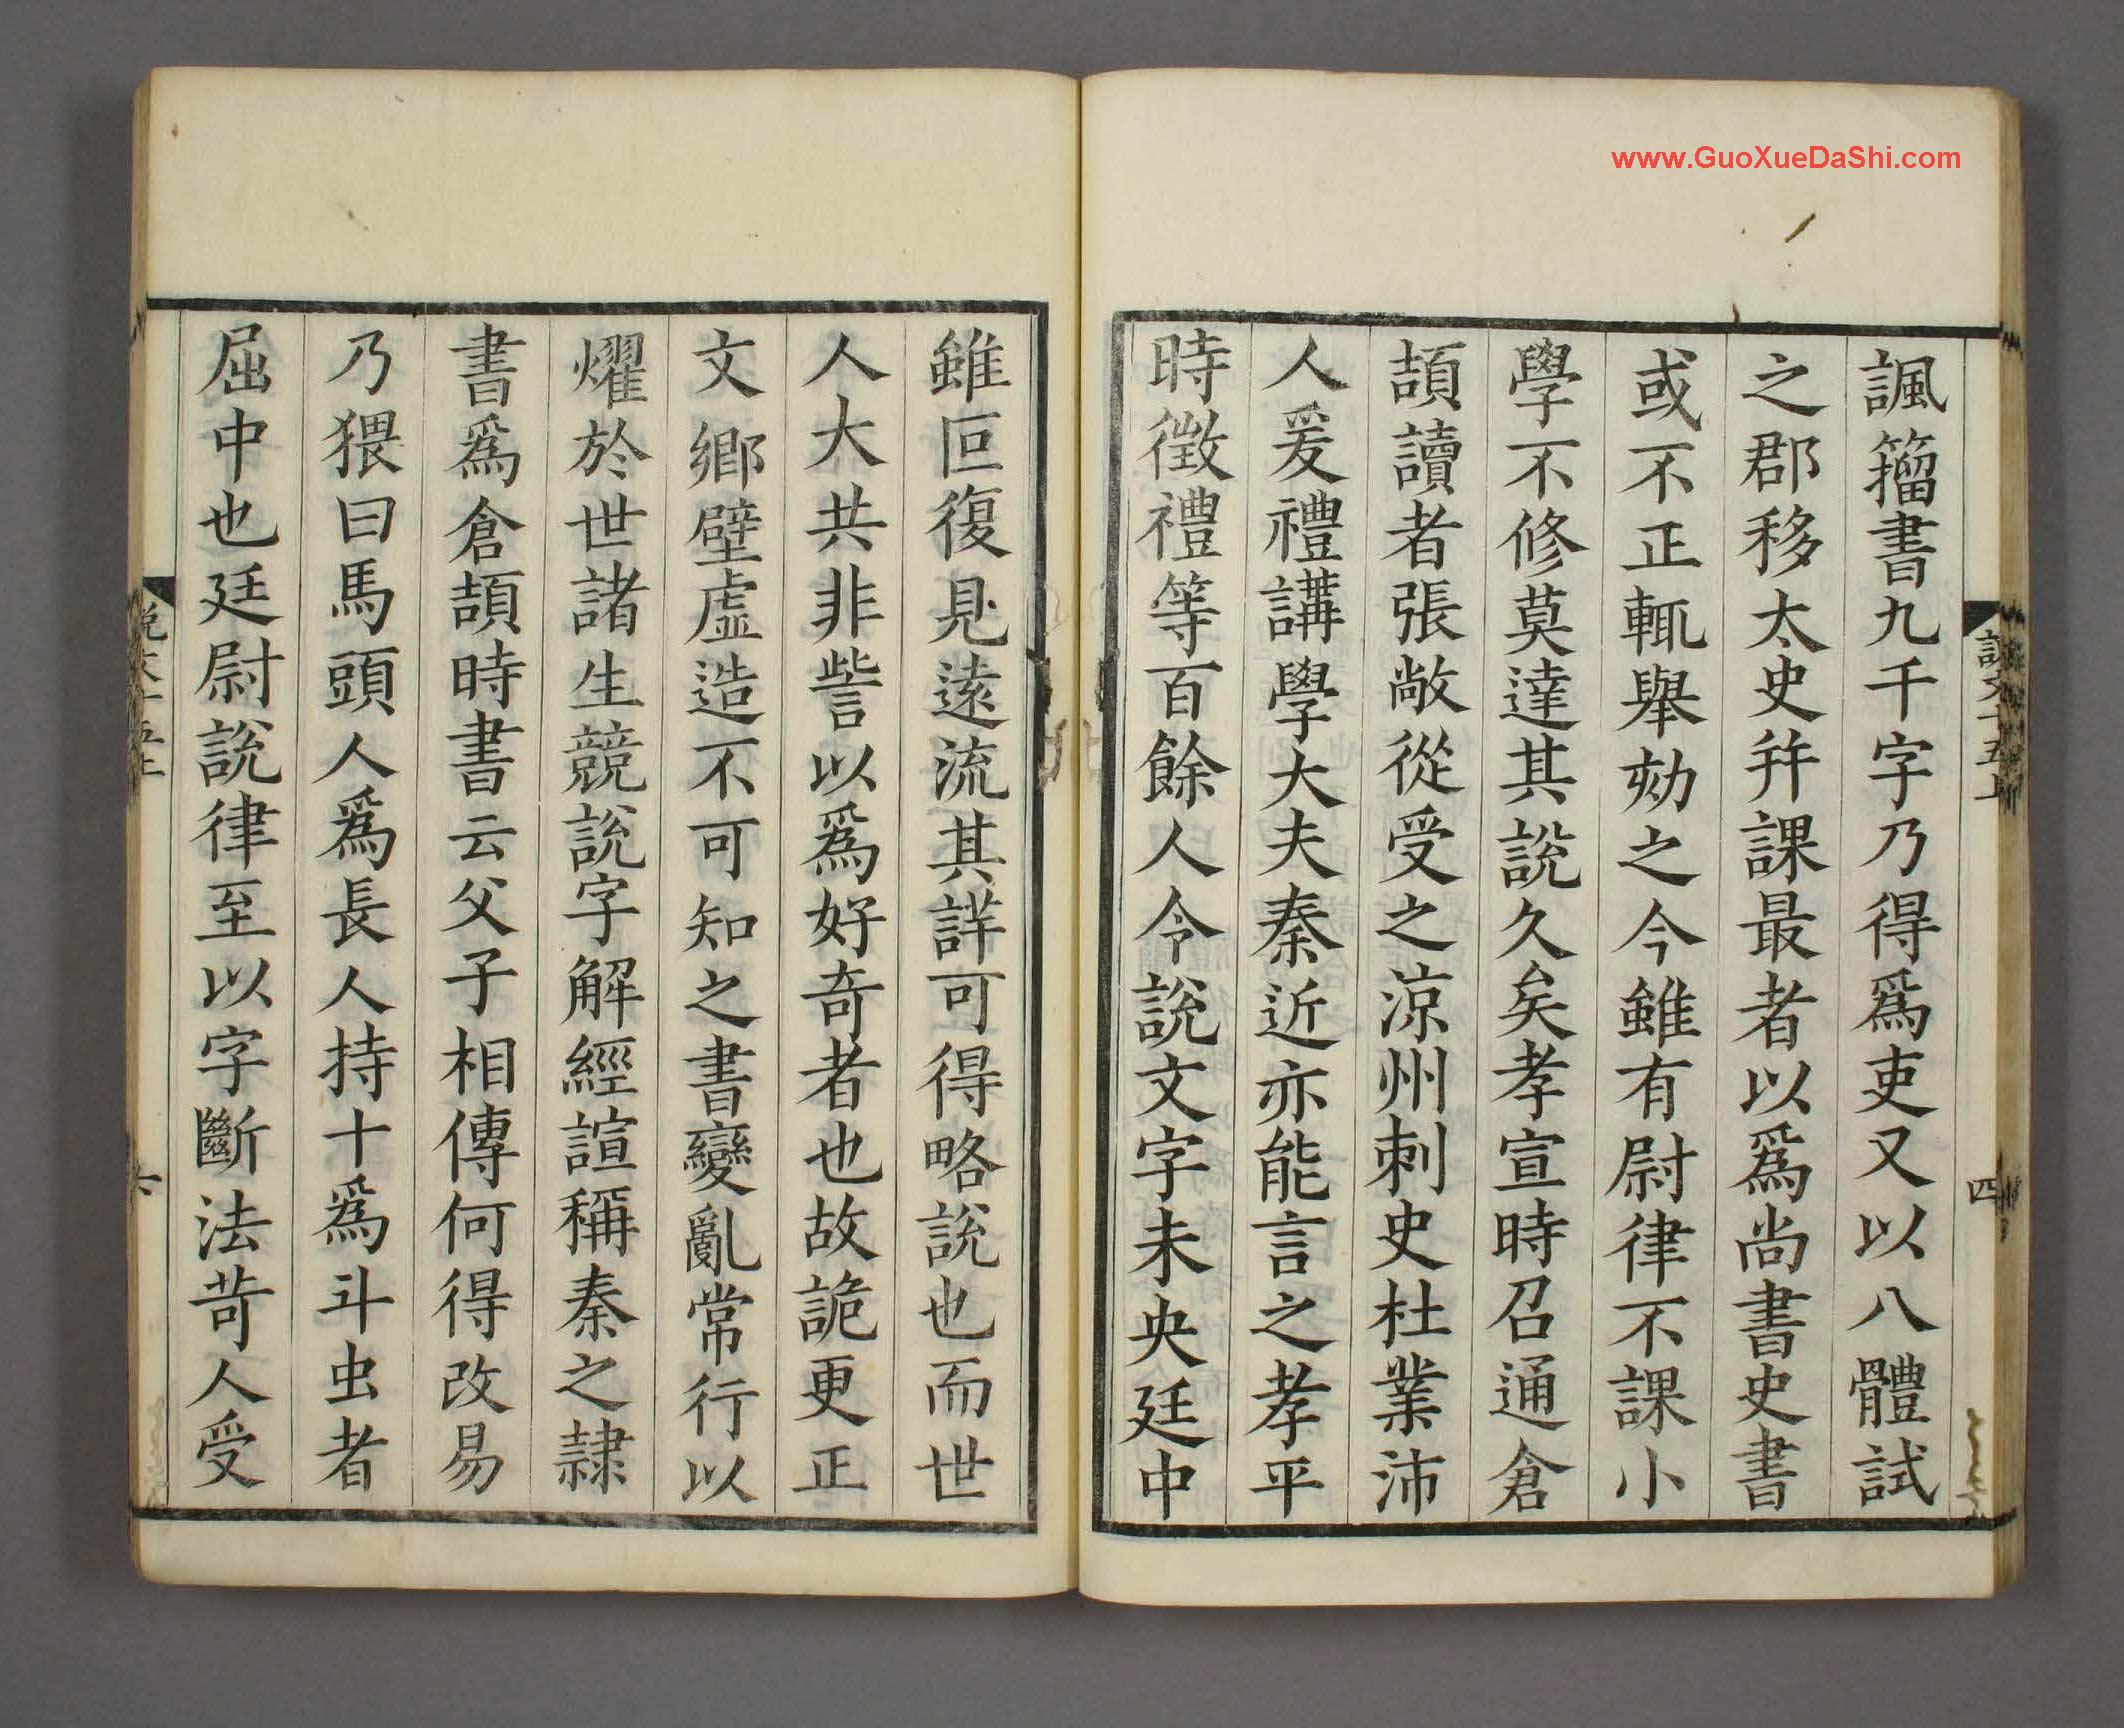 www.GuoXueDaShi.com
說文十五上
四
諷籀書九千字乃得爲吏又以八體試
之郡移太史幷課最者以爲尚書史書
或不正輒舉劾之今雖有尉律不課小
學不修莫達其説久矣孝宣時召通倉
頡讀者張敞從受之涼州刺史杜業沛
人爰禮講學大夫秦近亦能言之孝平
時徵禮等百餘人令説文字未央廷中
雖叵復見遠流其詳可得略說也而世
人大共非訾以爲好奇者也故詭更正
文鄉壁虛造不可知之書變亂常行以
燿於世諸生競說字解經諠稱秦之隸
書爲倉頡時書云父子相傳何得改易
乃猥曰馬頭人爲長人持十爲斗虫者
屈中也廷尉説律至以字斷法苛人受
説文十五上
六